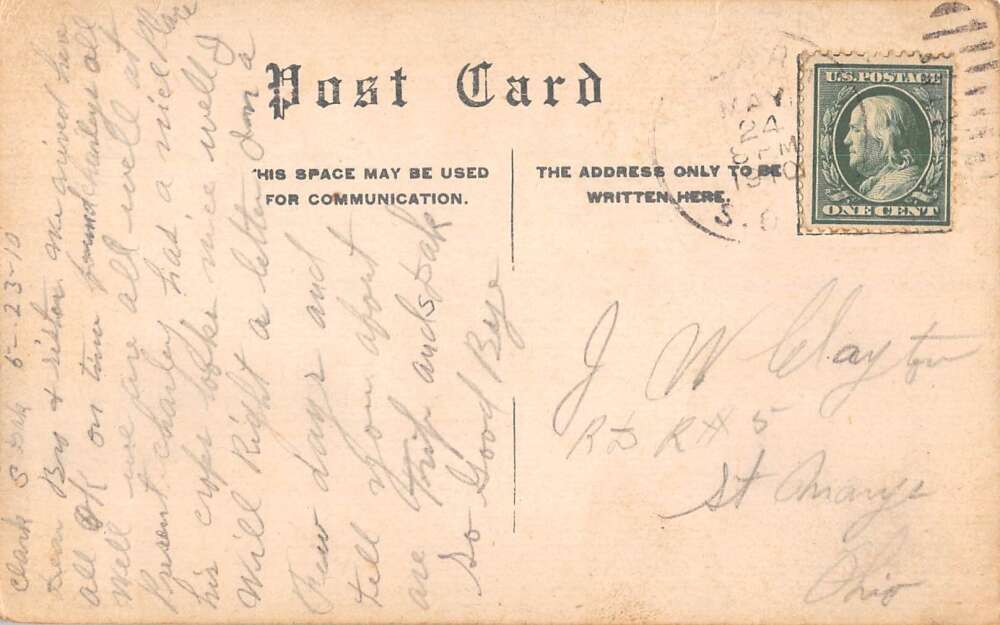 Post Card
THIS SPACE MAY BE USED
FOR COMMUNICATION.
THE ADDRESS ONLY TO BE
WRITTEN HERE.
U.S. POSTAGE
ONE CENT
MAY
24
PM
1910
Clark S Dak 5-23-10
Dear Bro & sister We arived her
all Ok on time found charleys all
Well we are all well at
Present charley has a nice Place
his crops looks nice well I
Will Right a letter in a
few days and
tell you about
our trip and S Dak
So Good Bye
J W Clayton
RD R # 5
St Marys
Ohio